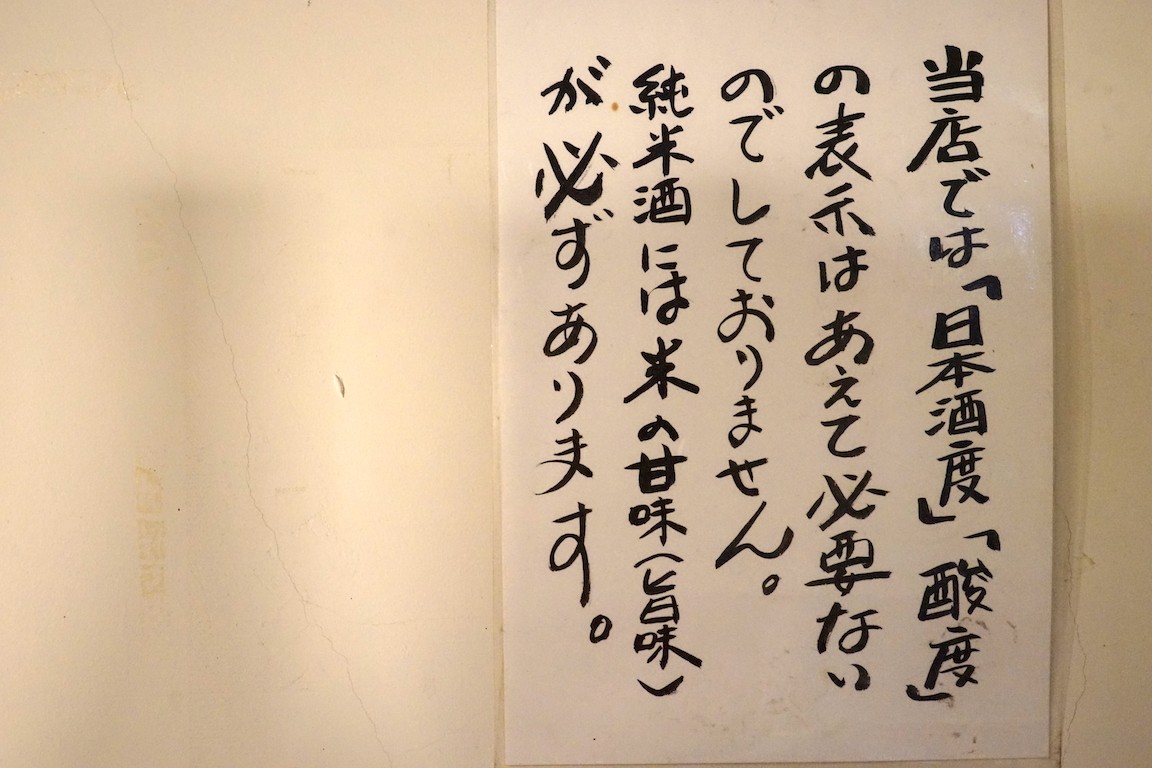 当店では「日本酒度」「酸度」
の表示はあえて必要ない
のでしておりません。
純米酒には米の甘味(旨味)
が必ずあります。